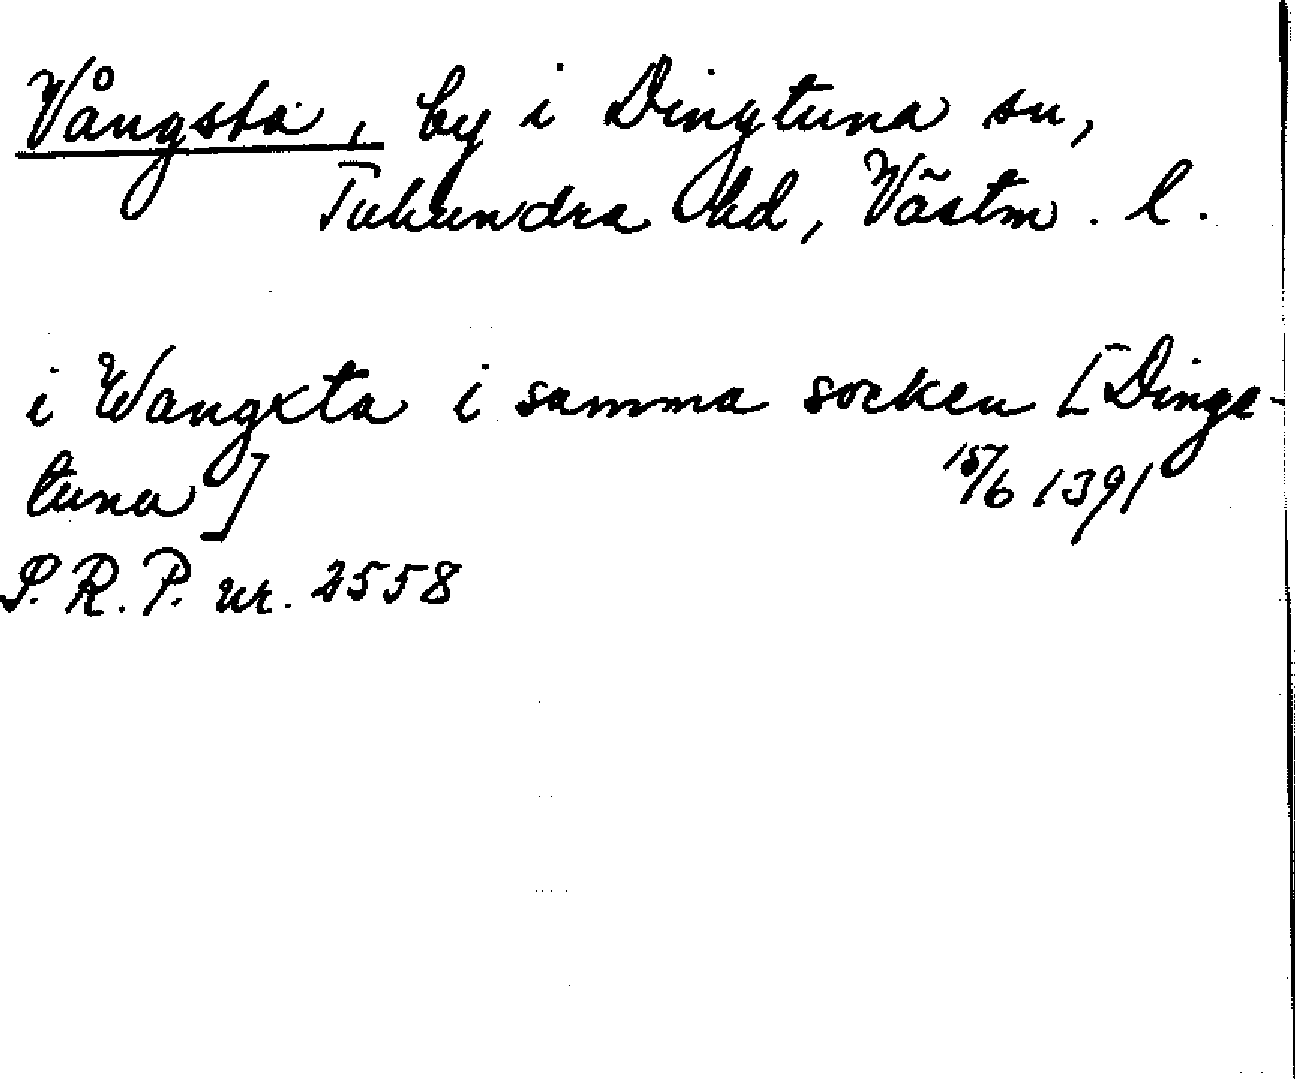 Vångsta, by i Dingtuna sn,
Tuhundra hd, Västm. l.
i Wangxta i samma socken [Dinge-
tuna] 15/6 1391
S. R. P. nr. 2558